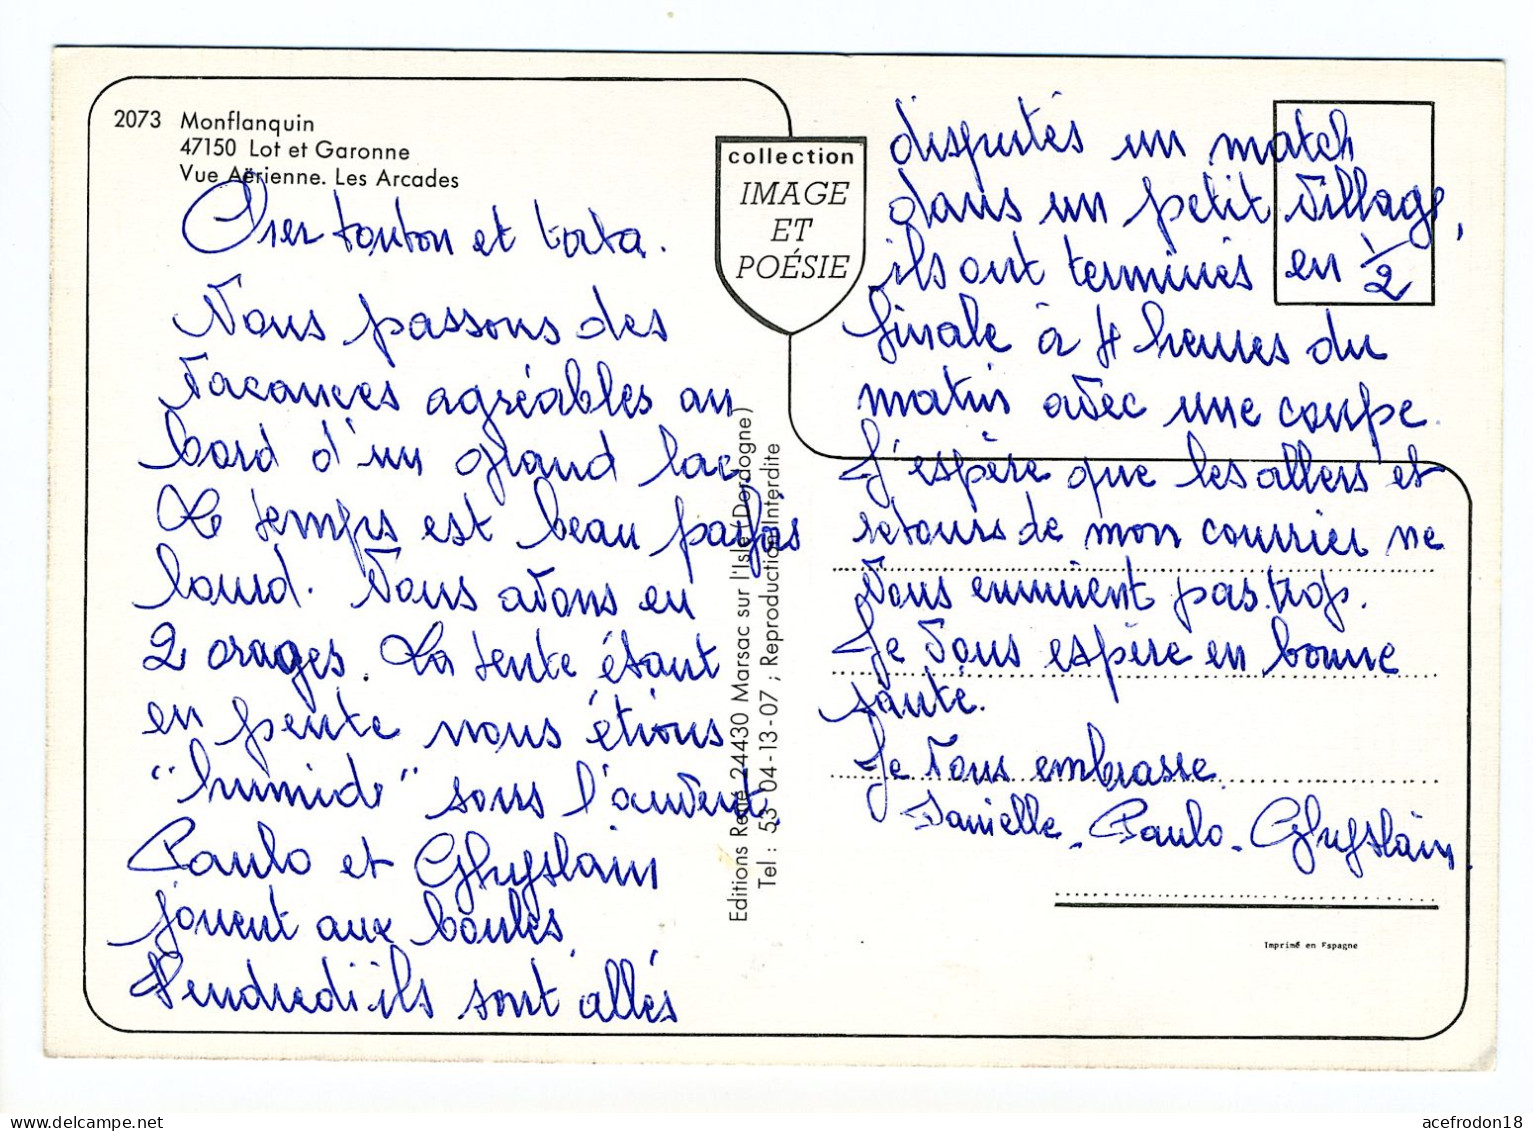 2073 Monflanquin
47150 Lot et Garonne
Vue Aërienne. Les Arcades
Cher tonton et tata.
Nous passons des
vacances agréables au
bord d'un grand lac.
Le temps est beau parfois
lourd. Nous avons eu
2 orages. La tente étant
en pente nous étions
"humide" sous l'auvent.
Paulo et Ghyslain
jouent aux boules.
Vendredi ils sont allés
collection
IMAGE
ET
POÉSIE
Editions René 24430 Marsac sur l'Isle (Dordogne)
Tel : 53-04-13-07 ; Reproduction Interdite
disputés un match
dans un petit village,
ils ont terminés en 1/2
finale à 4 heures du
matin avec une coupe.
J'espère que les allers et
retours de mon courrier ne
vous ennuient pas trop.
Je vous espère en bonne
santé.
Je vous embrasse.
Danielle - Paulo - Ghyslain.
Imprimé en Espagne
acefrodon18